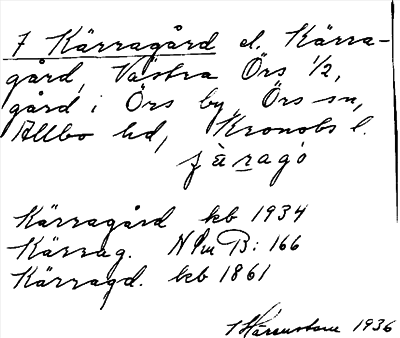 7 Kärragård el. Kärra-
gård, Västra Örs 1/2,
gård i Örs by, Örs sn,
Allbo hd, Kronobs l.
Kärragård kb 1934
Kärrag. B: 166
Kärragd. kb 1861
1936